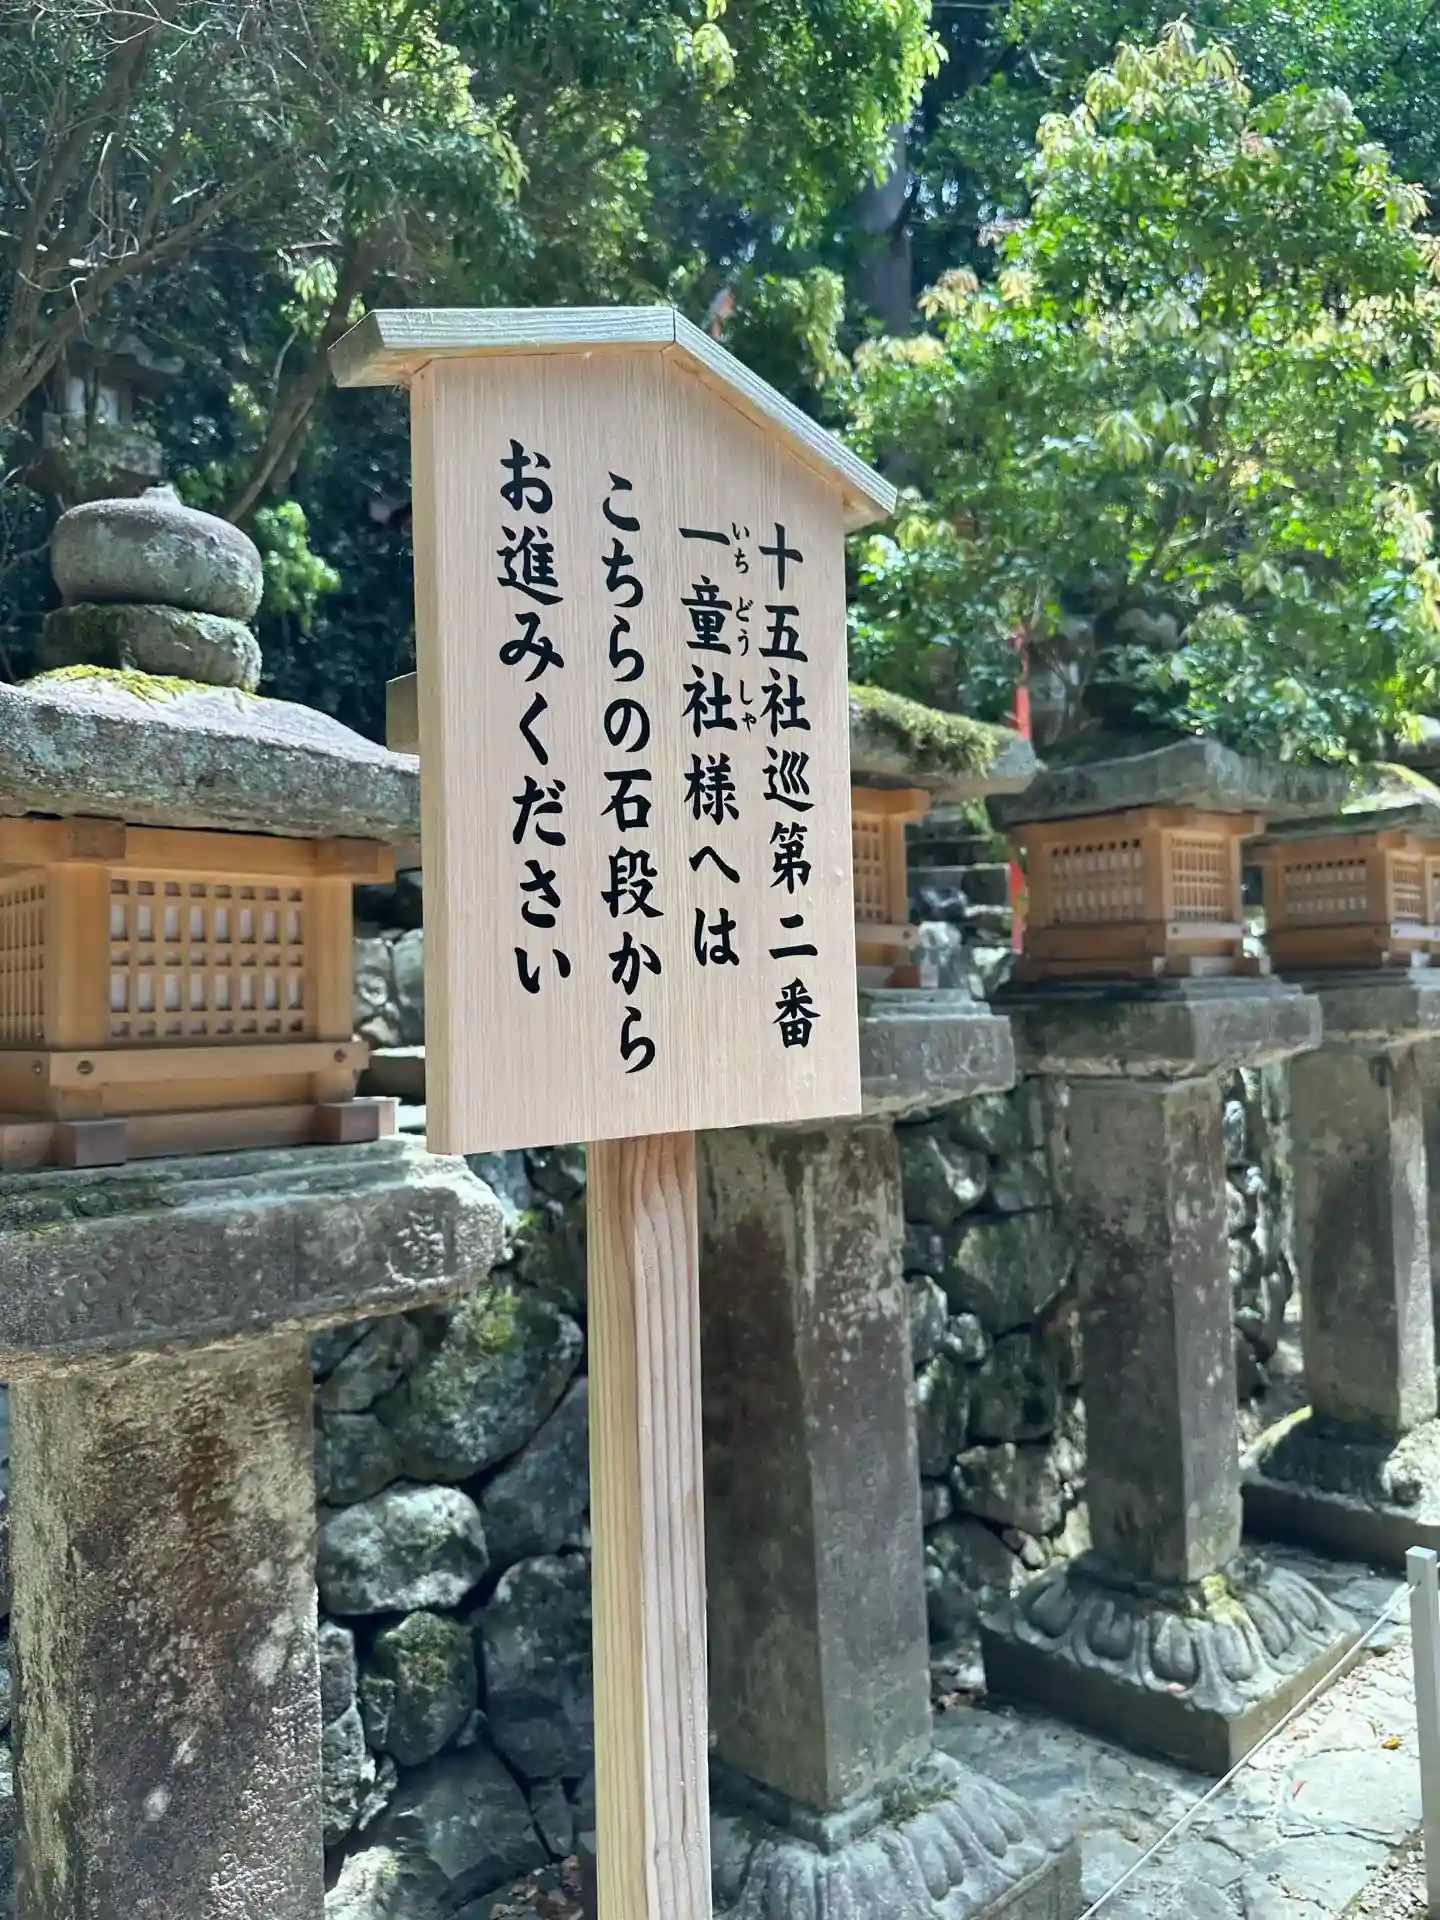 十五社巡第二番
一童社様へは
いちどうしゃ
こちらの石段から
お進みください